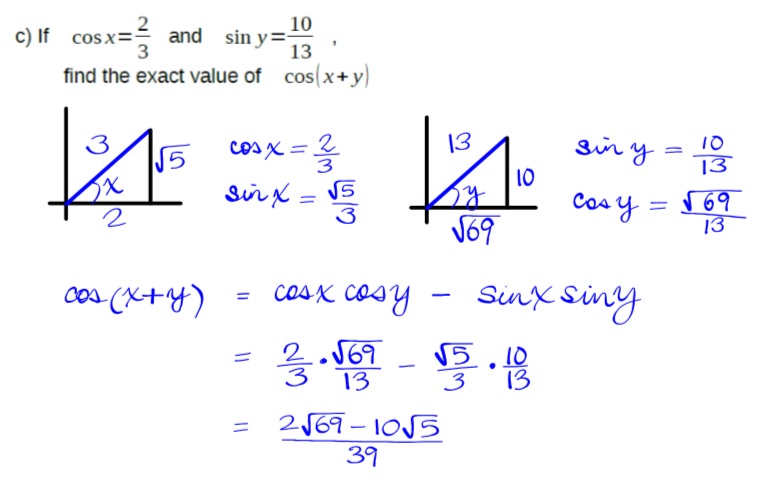 c) If cos x = 2/3 and sin y = 10/13 ,
find the exact value of cos(x+y)
3 √5 x 2
cos x = 2/3
sin x = √5/3
13 10 y √69
sin y = 10/13
cos y = √69/13
cos(x+y) = cos x cos y − sin x sin y
= 2/3 · √69/13 − √5/3 · 10/13
= (2√69 − 10√5)/39